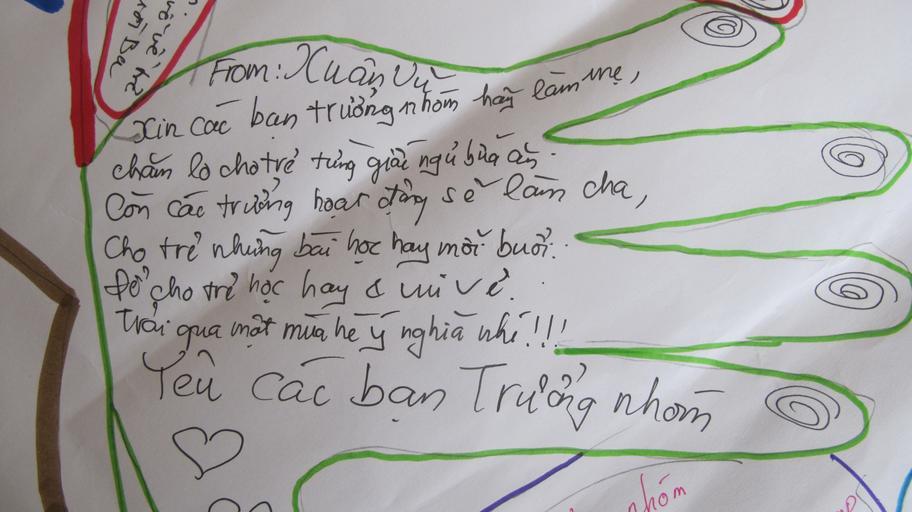 From: Xuân Vũ
Xin các bạn trưởng nhóm hãy làm mẹ,
chăm lo cho trẻ từng giấc ngủ bữa ăn.
Còn các trưởng hoạt động sẽ làm cha,
Cho trẻ những bài học hay mỗi buổi.
Để cho trẻ học hay & vui vẻ.
Trải qua một mùa hè ý nghĩa nhé!!!
Yêu các bạn Trưởng nhóm
nhóm